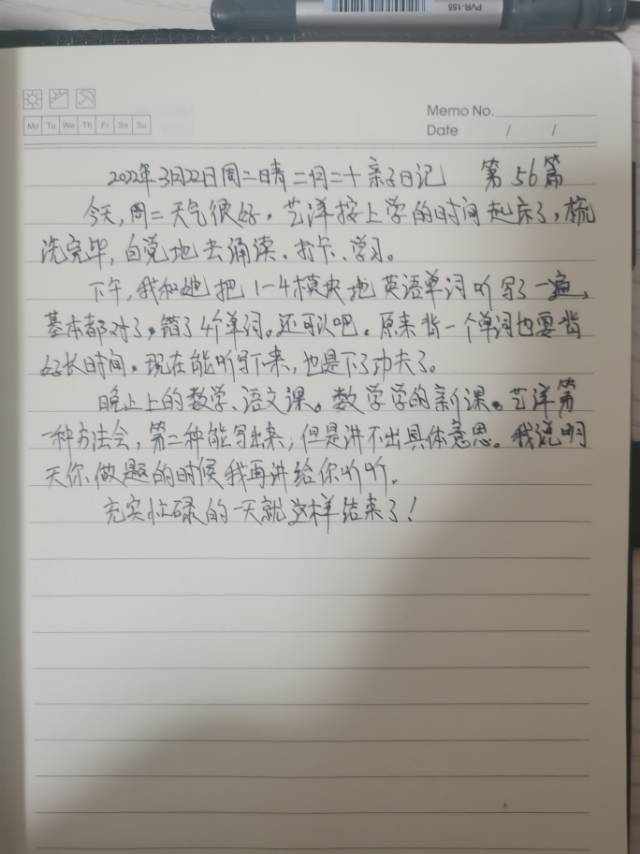 PVR-155
Memo No.
Mo Tu We Th Fr Sa Su
Date / /
2022年3月22日周二晴二月二十亲子日记 第56篇
今天,周二天气很好。艺洋按上学的时间起床了,梳
洗完毕,自觉地去诵读、打卡、学习。
下午,我和她把1-4模块地英语单词听写了一遍,
基本都对了,错了4个单词。还可以吧。原来背一个单词也要背
好长时间。现在能听写下来,也是下了功夫了。
晚上上的数学、语文课。数学学的新课。艺洋第
一种方法会,第二种能写出来,但是讲不出具体意思。我说明
天你做题的时候我再讲给你听听。
充实忙碌的一天就这样结束了!